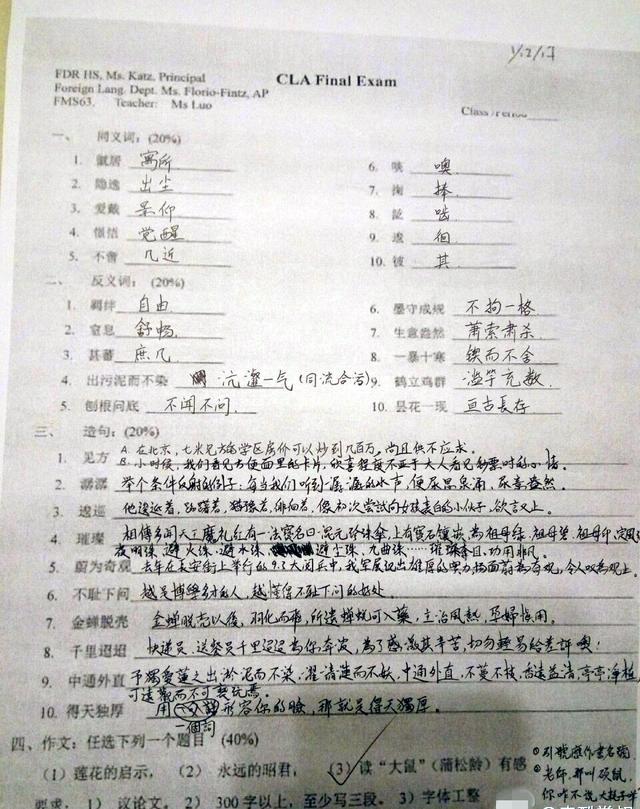 1/12/17
FDR HS, Ms. Katz, Principal
CLA Final Exam
Foreign Lang. Dept. Ms. Florio-Fintz, AP
FMS63. Teacher: Ms Luo
Class /Period
一、 同义词：(20%)
1. 僦居 寓所
6. 咦 噢
2. 隐逸 出尘
7. 掬 捧
3. 爱戴 景仰
8. 訿 啙
4. 憬悟 觉醒
9. 逡 徊
5. 不啻 几近
10. 彼 其
二、 反义词：(20%)
1. 羁绊 自由
6. 墨守成规 不拘一格
2. 窒息 舒畅
7. 生意盎然 萧索肃杀
3. 甚蕃 庶几
8. 一暴十寒 锲而不舍
4. 出污泥而不染 沆瀣一气(同流合污)
9. 鹤立鸡群 滥竽充数
5. 刨根问底 不闻不问
10. 昙花一现 亘古长存
三、 造句：(20%)
1. 见方 A. 在北京，七米见方的学区房价可以炒到几百万，尚且供不应求。
B. 小时候，我们看见方便面里的卡片，欣喜程度不亚于大人看见钞票时的心情。
2. 潺潺 举个条件反射的例子，每当我们听到潺潺的水声，便尿思泉涌，尿意盎然。
3. 逡巡 他逡巡着，踌躇着，犹豫着，徘徊着，像初次尝试向女孩表白的小伙子，欲言又止。
4. 璀璨 相传多闻天王魔礼红有一法宝名曰：混元珍珠伞，上有宝石镶嵌，为祖母绿，祖母碧，祖母印，定风
夜明珠，避火珠，避水珠，避尘珠，九曲珠……璀璨夺目，功用非凡。
5. 蔚为奇观 去年在长安街上举行的9.3大阅兵中，我军展现出雄厚的实力，场面蔚为奇观，令人叹为观止。
6. 不耻下问 越是博学多才的人，越懂得不耻下问的好处。
7. 金蝉脱壳 金蝉脱壳以后，羽化而飞，所遗蝉蜕可入藥，主治風熱，孕婦慎用。
8. 千里迢迢 快递员、送餐员千里迢迢为你奔波，為了感激其辛苦，切勿轻易给差评噢！
9. 中通外直 予獨愛蓮之出淤泥而不染，濯清漣而不妖，中通外直，不蔓不枝，香遠益清，亭亭淨植，
可遠觀而不可褻玩焉。
10. 得天独厚 用一个詞形容你的臉，那就是得天獨厚。
四、作文：任选下列一个题目 (40%)
(1) 莲花的启示， (2) 永远的昭君， (3) 读“大鼠”（蒲松龄）有感
要求： 1) 议论文。 2) 300字以上，至少写三段。 3) 字体工整
①引號應作書名號
②老師，那叫碩鼠，
你咋不说大耗子